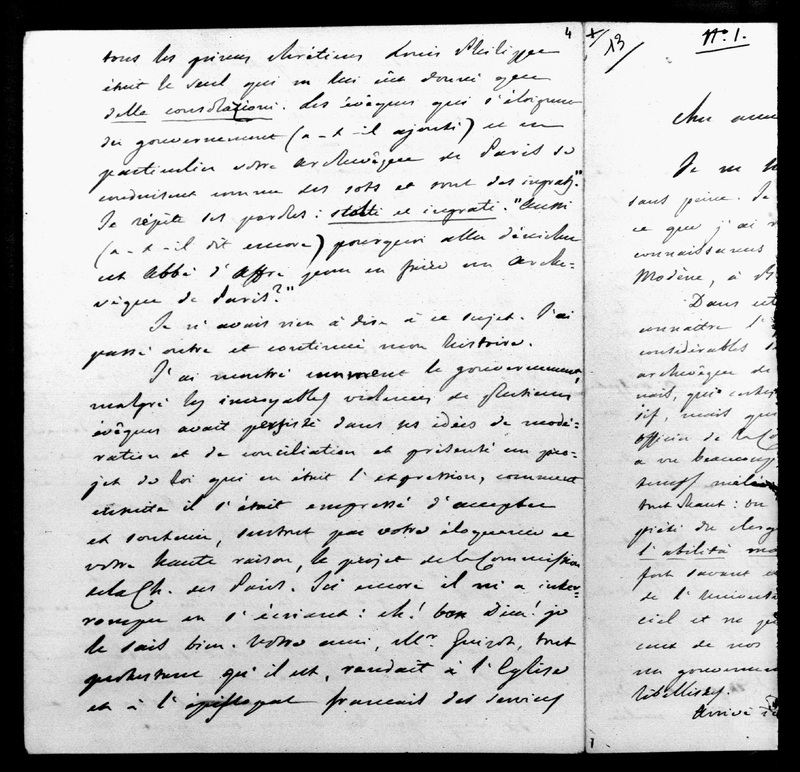 4
tous les princes chrétiens Louis Philippe
était le seul qui ne lui eût donné que
delle consolazioni. Les évêques qui s'éloignent
du gouvernement (a-t-il ajouté) et en
particulier votre archevêque de Paris se
conduisent comme des sots et sont des ingrats."
Je répète ses paroles : stolti et ingrati. "Aussi
(a-t-il dit encore) pourquoi aller dénicher
cet Abbé d'Affre pour en faire un arche-
vêque de Paris?"
Je n'avais rien à dire à ce sujet. J'ai
passé outre et continué mon histoire.
J'ai montré comment le gouvernement,
malgré les incroyables violences de plusieurs
évêques avait persisté dans ses idées de modé-
ration et de conciliation et présenté un pro-
jet de loi qui en était l'expression, comment
ensuite il s'était empressé d'accepter
et soutenir, surtout par votre éloquence et
votre haute raison, le projet de la Commission
de la Ch. des Pairs. Ici encore il m'a inter-
rompu en s'écriant : eh! bon Dieu! je
le sais bien. Votre ami, Mr. Guizot, tout
protestant qu'il est, rendait à l'Eglise
et à l'épiscopat français des services
13
No. 1.
Cher
Je ne
sans peine. Je
ce que j'ai
connaissances
Modène, à
Dans
connaître l'
considérables
archevêque de
nais, qui
sif, mais que
officier de la
a vu beaucoup
tout haut : 
piété du clergé
l'abilità
fort savant
de l'Université
ciel et ne
cent de nos
un gouvernement
ribelliszy.
Arrivé